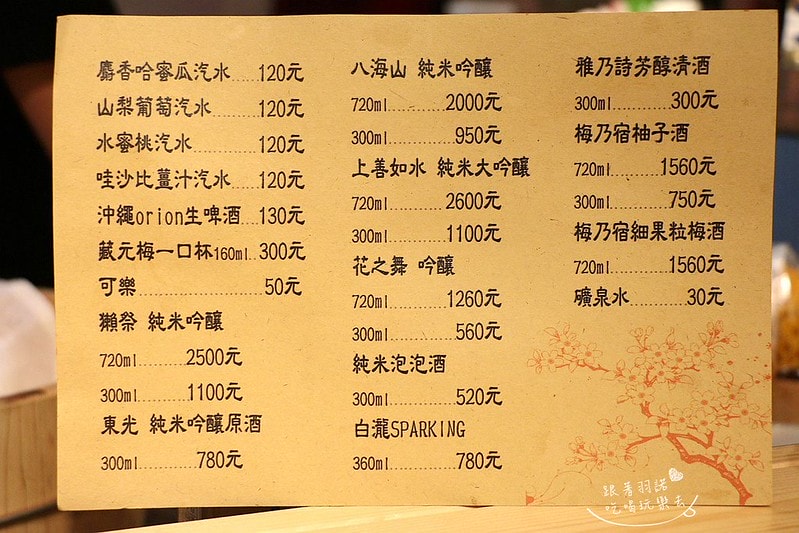 麝香哈蜜瓜汽水......120元
山梨葡萄汽水..........120元
水蜜桃汽水..............120元
哇沙比薑汁汽水......120元
沖繩orion生啤酒....130元
藏元梅一口杯160ml..300元
可樂..........................50元
獺祭 純米吟釀
720ml..........2500元
300ml..........1100元
東光 純米吟釀原酒
300ml............780元
八海山 純米吟釀
720ml............2000元
300ml..............950元
上善如水 純米大吟釀
720ml............2600元
300ml............1100元
花之舞 吟釀
720ml............1260元
300ml..............560元
純米泡泡酒
300ml..............520元
白瀧SPARKING
360ml..............780元
雅乃詩芳醇清酒
300ml............300元
梅乃宿柚子酒
720ml..........1560元
300ml............750元
梅乃宿細果粒梅酒
720ml............1560元
礦泉水............30元
跟著羽諾
吃喝玩樂去